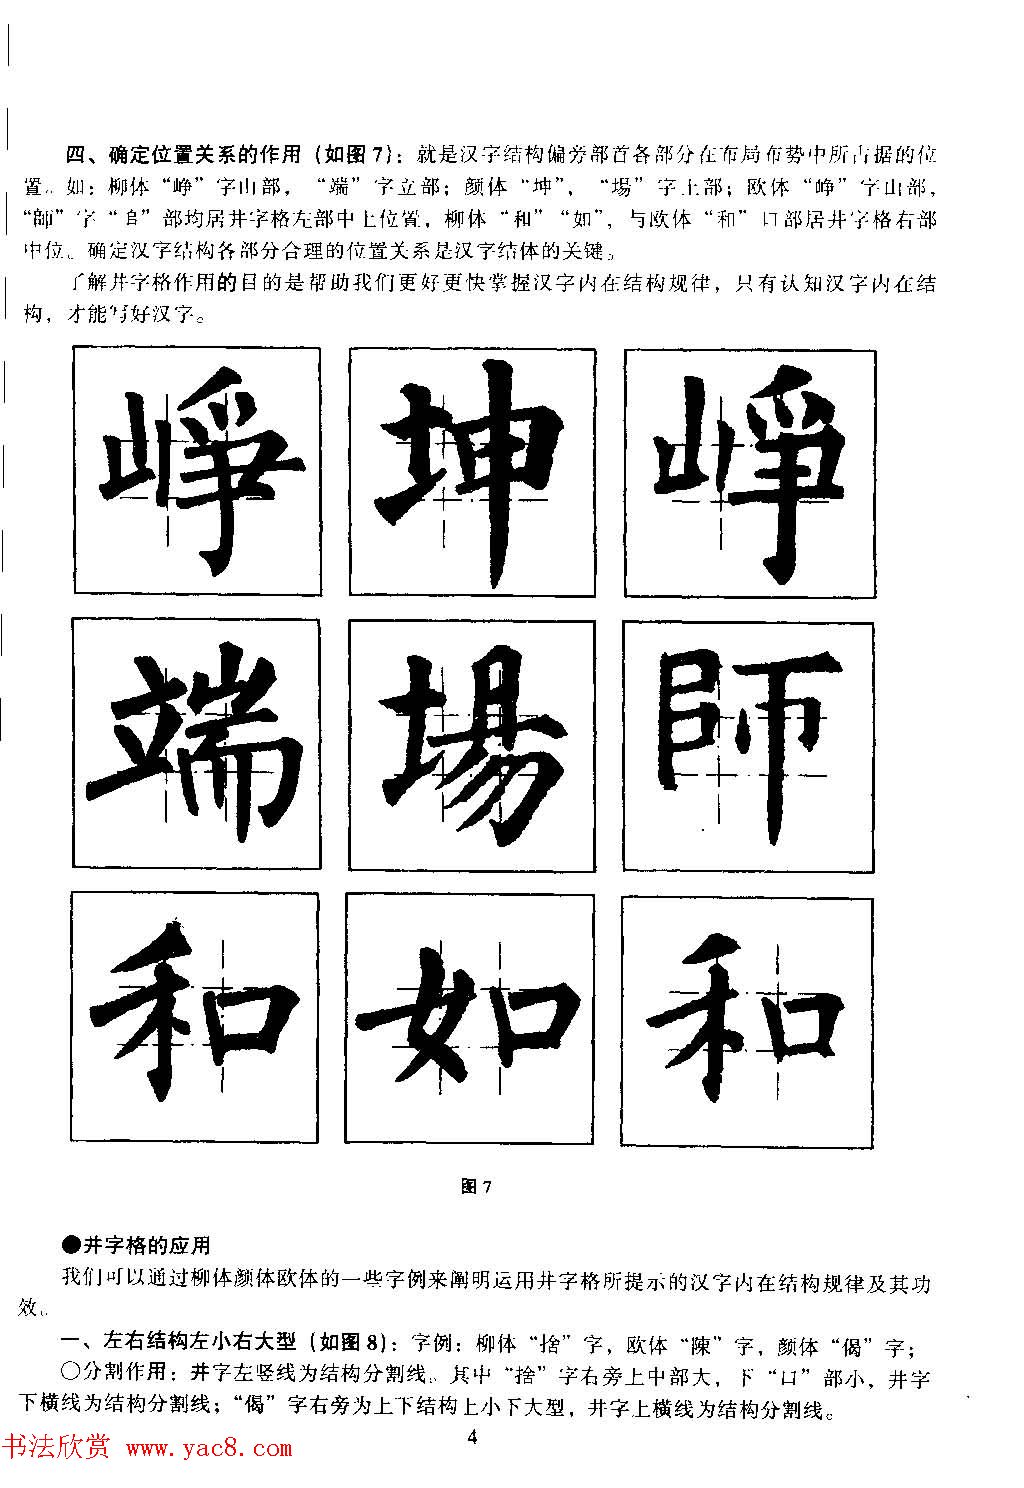 四、确定位置关系的作用（如图7）：就是汉字结构偏旁部首各部分在布局布势中所占据的位
置。如：柳体“峥”字山部，“端”字立部；颜体“坤”，“場”字土部；欧体“峥”字山部，
“師”字“𠂤”部均居井字格左部中上位置，柳体“和”“如”，与欧体“和”口部居井字格右部
中位。确定汉字结构各部分合理的位置关系是汉字结体的关键。
了解井字格作用的目的是帮助我们更好更快掌握汉字内在结构规律，只有认知汉字内在结
构，才能写好汉字。
崢 坤 崢
端 場 師
和 如 和
图7
●井字格的应用
我们可以通过柳体颜体欧体的一些字例来阐明运用井字格所提示的汉字内在结构规律及其功
效。
一、左右结构左小右大型（如图8）：字例：柳体“捨”字，欧体“陳”字，颜体“偈”字；
○分割作用：井字左竖线为结构分割线。其中“捨”字右旁上中部大，下“口”部小，井字
下横线为结构分割线；“偈”字右旁为上下结构上小下大型，井字上横线为结构分割线。
4
书法欣赏 www.yac8.com